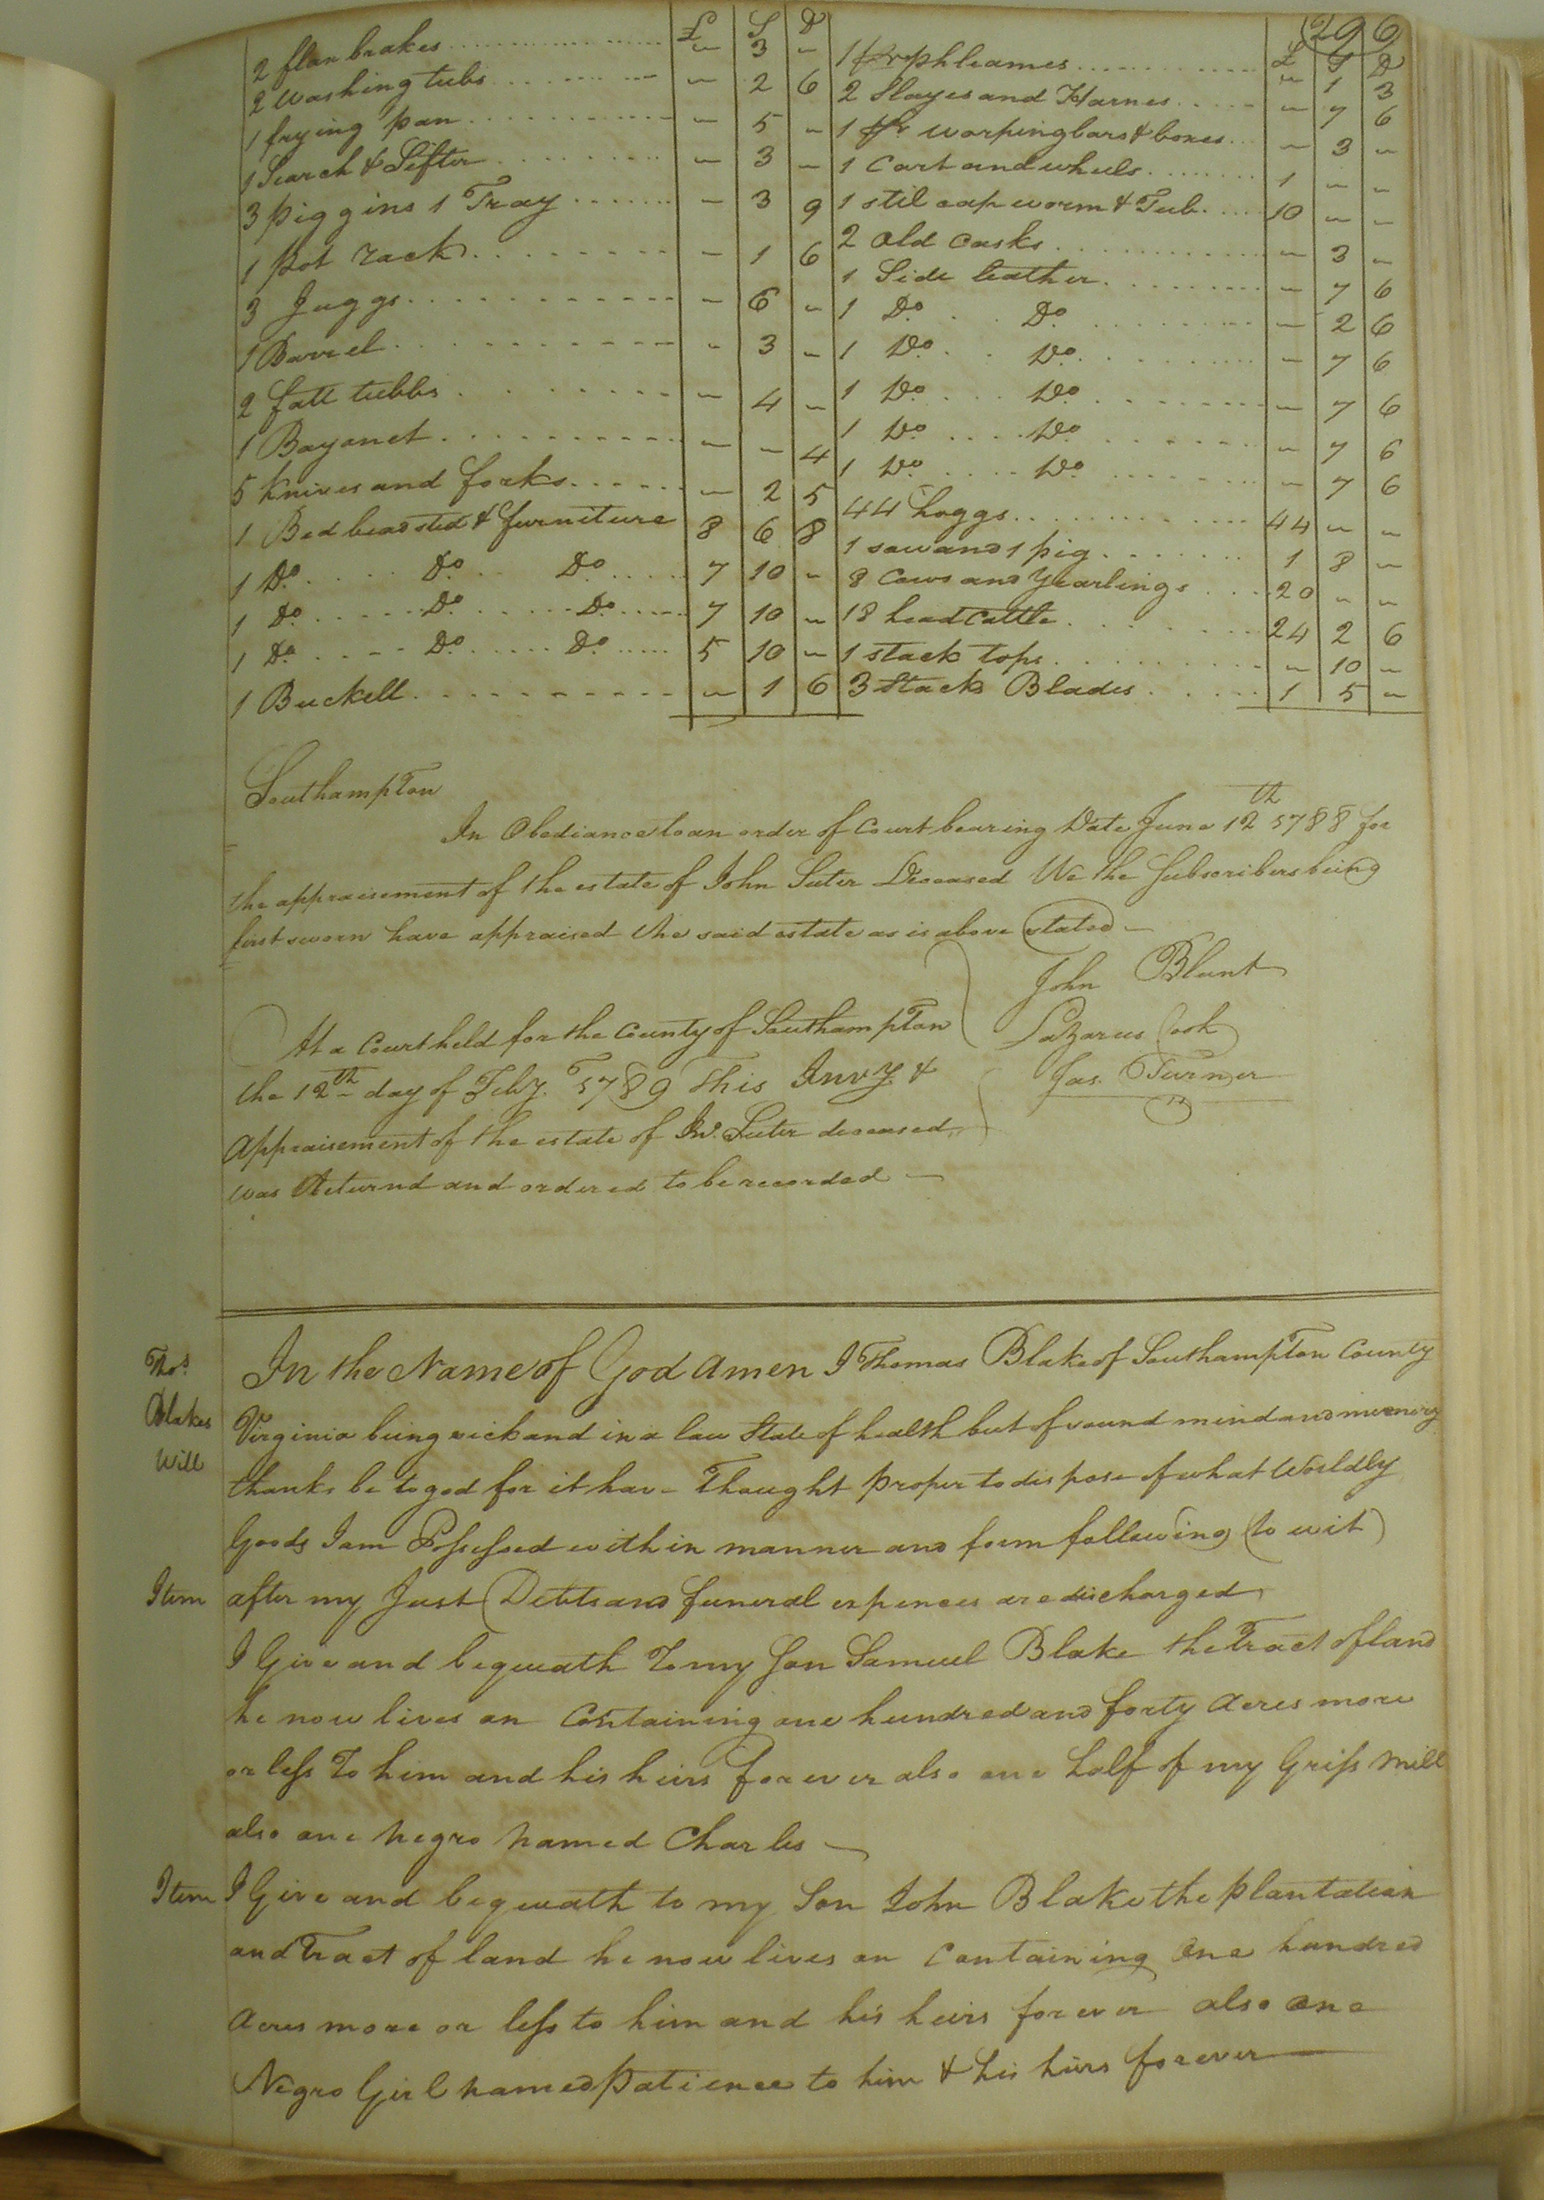 296
£ S D
2 flax brakes - 3 -
2 Washing tubs - 2 6
1 frying pan - 5 -
1 Search & Sifter - 3 -
3 piggins 1 Tray - 3 9
1 Pot rack - 1 6
3 Juggs - 6 -
1 Barrel - 3 -
2 fatt tubbs - 4 -
1 Bayonet - - 4
5 Knives and forks - 2 5
1 Bed beadsted & furniture 8 6 8
1 Do. Do. Do. 7 10 -
1 Do. Do. Do. 7 10 -
1 Do. Do. Do. 5 10 -
1 Buckett - 1 6
£ S D
1 pr phleames - 1 3
2 Slayes and Harnes - 7 6
1 pr warping bars & boxes - 3 -
1 Cart and wheels 1 - -
1 still cap worm & Tub 10 - -
2 old casks - 3 -
1 Side leather - 7 6
1 Do. Do. - 2 6
1 Do. Do. - 7 6
1 Do. Do. - 7 6
1 Do. Do. - 7 6
1 Do. Do. - 7 6
44 hoggs 44 - -
1 sow and 1 pig 1 8 -
8 Cows and Yearlings 20 - -
18 head Cattle 24 2 6
1 stack tops - 10 -
3 Stacks Blades 1 5 -
Southampton
In Obediance to an order of Court bearing Date June 12th 1788 for
the appraisement of the estate of John Suter Deceased We the Subscribers being
first sworn have appraised the said estate as is above stated
John Blunt
Lazarus Cook
Jas. Turner
At a Court held for the County of Southampton
the 12th day of Feby. 1789 This Invy. &
appraisement of the estate of Jno. Suter deceased
was Returnd and ordered to be recorded
Thos.
Blakes
Will
In the Name of God Amen I Thomas Blake of Southampton County
Virginia being sick and in a low State of health but of sound mind and memory
thanks be to god for it have Thought proper to dispose of what Worldly
Goods I am Possessed with in manner and form following (to wit)
Item after my Just Debts and funeral expences are discharged
I Give and bequeath To my Son Samuel Blake the Tract of land
he now lives on Containing one hundred and forty Acres more
or less To him and his heirs forever also one half of my Griss Mill
also one negro named Charles
Item I Give and bequeath to my Son John Blake the plantation
and Tract of land he now lives on containing One hundred
Acres more or less to him and his heirs forever also one
Negro Girl named Patience to him & his heirs forever